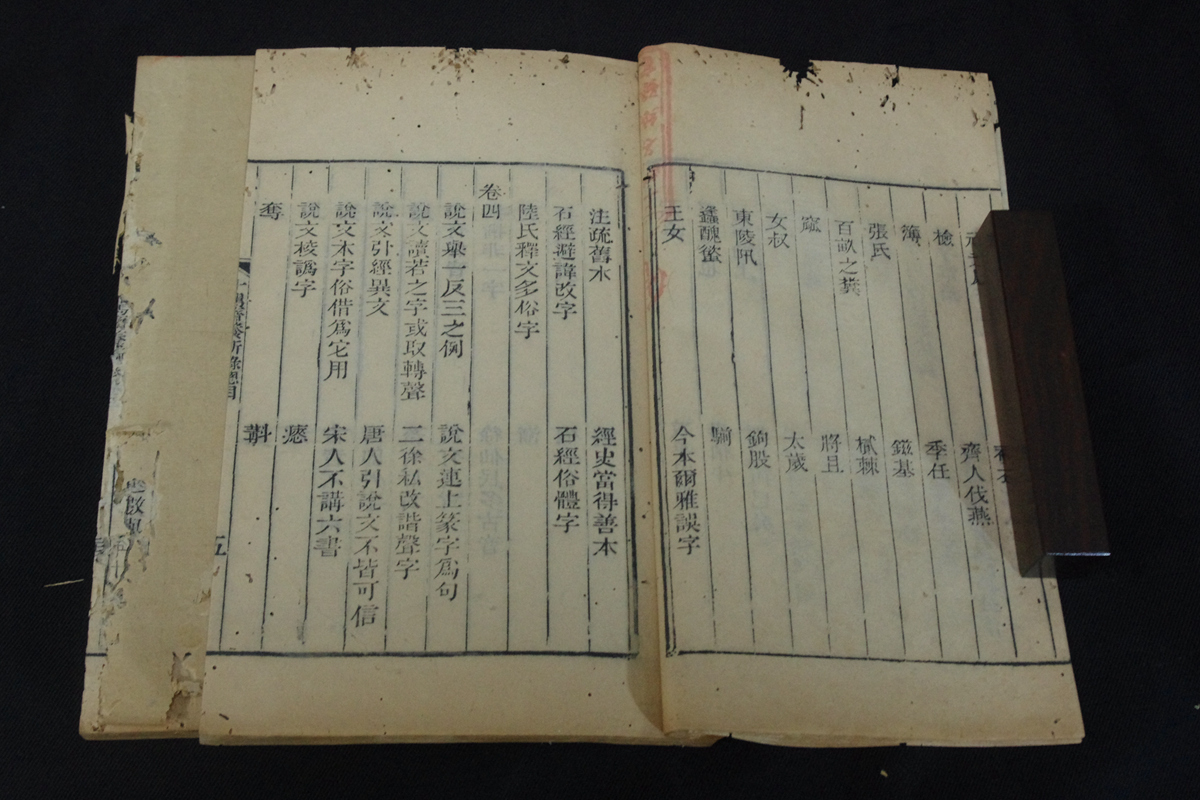 齊人伐燕
檢
簿 季任
張氏 鎡基
百畝之糞 樲棘
窳 將且
女叔 太歲
東陵阠 鉤股
蠭醜螸 騚
王女 今本爾雅誤字
注疏舊本 經史當得善本
石經避諱改字 石經俗體字
陸氏釋文多俗字
卷四
說文舉一反三之例 說文連上篆字爲句
說文讀若之字或取轉聲 二徐私改諧聲字
說文引經異文 唐人引說文不皆可信
說文本字俗借爲它用 宋人不講六書
說文校譌字
奪 斠
十駕齋養新錄總目 五